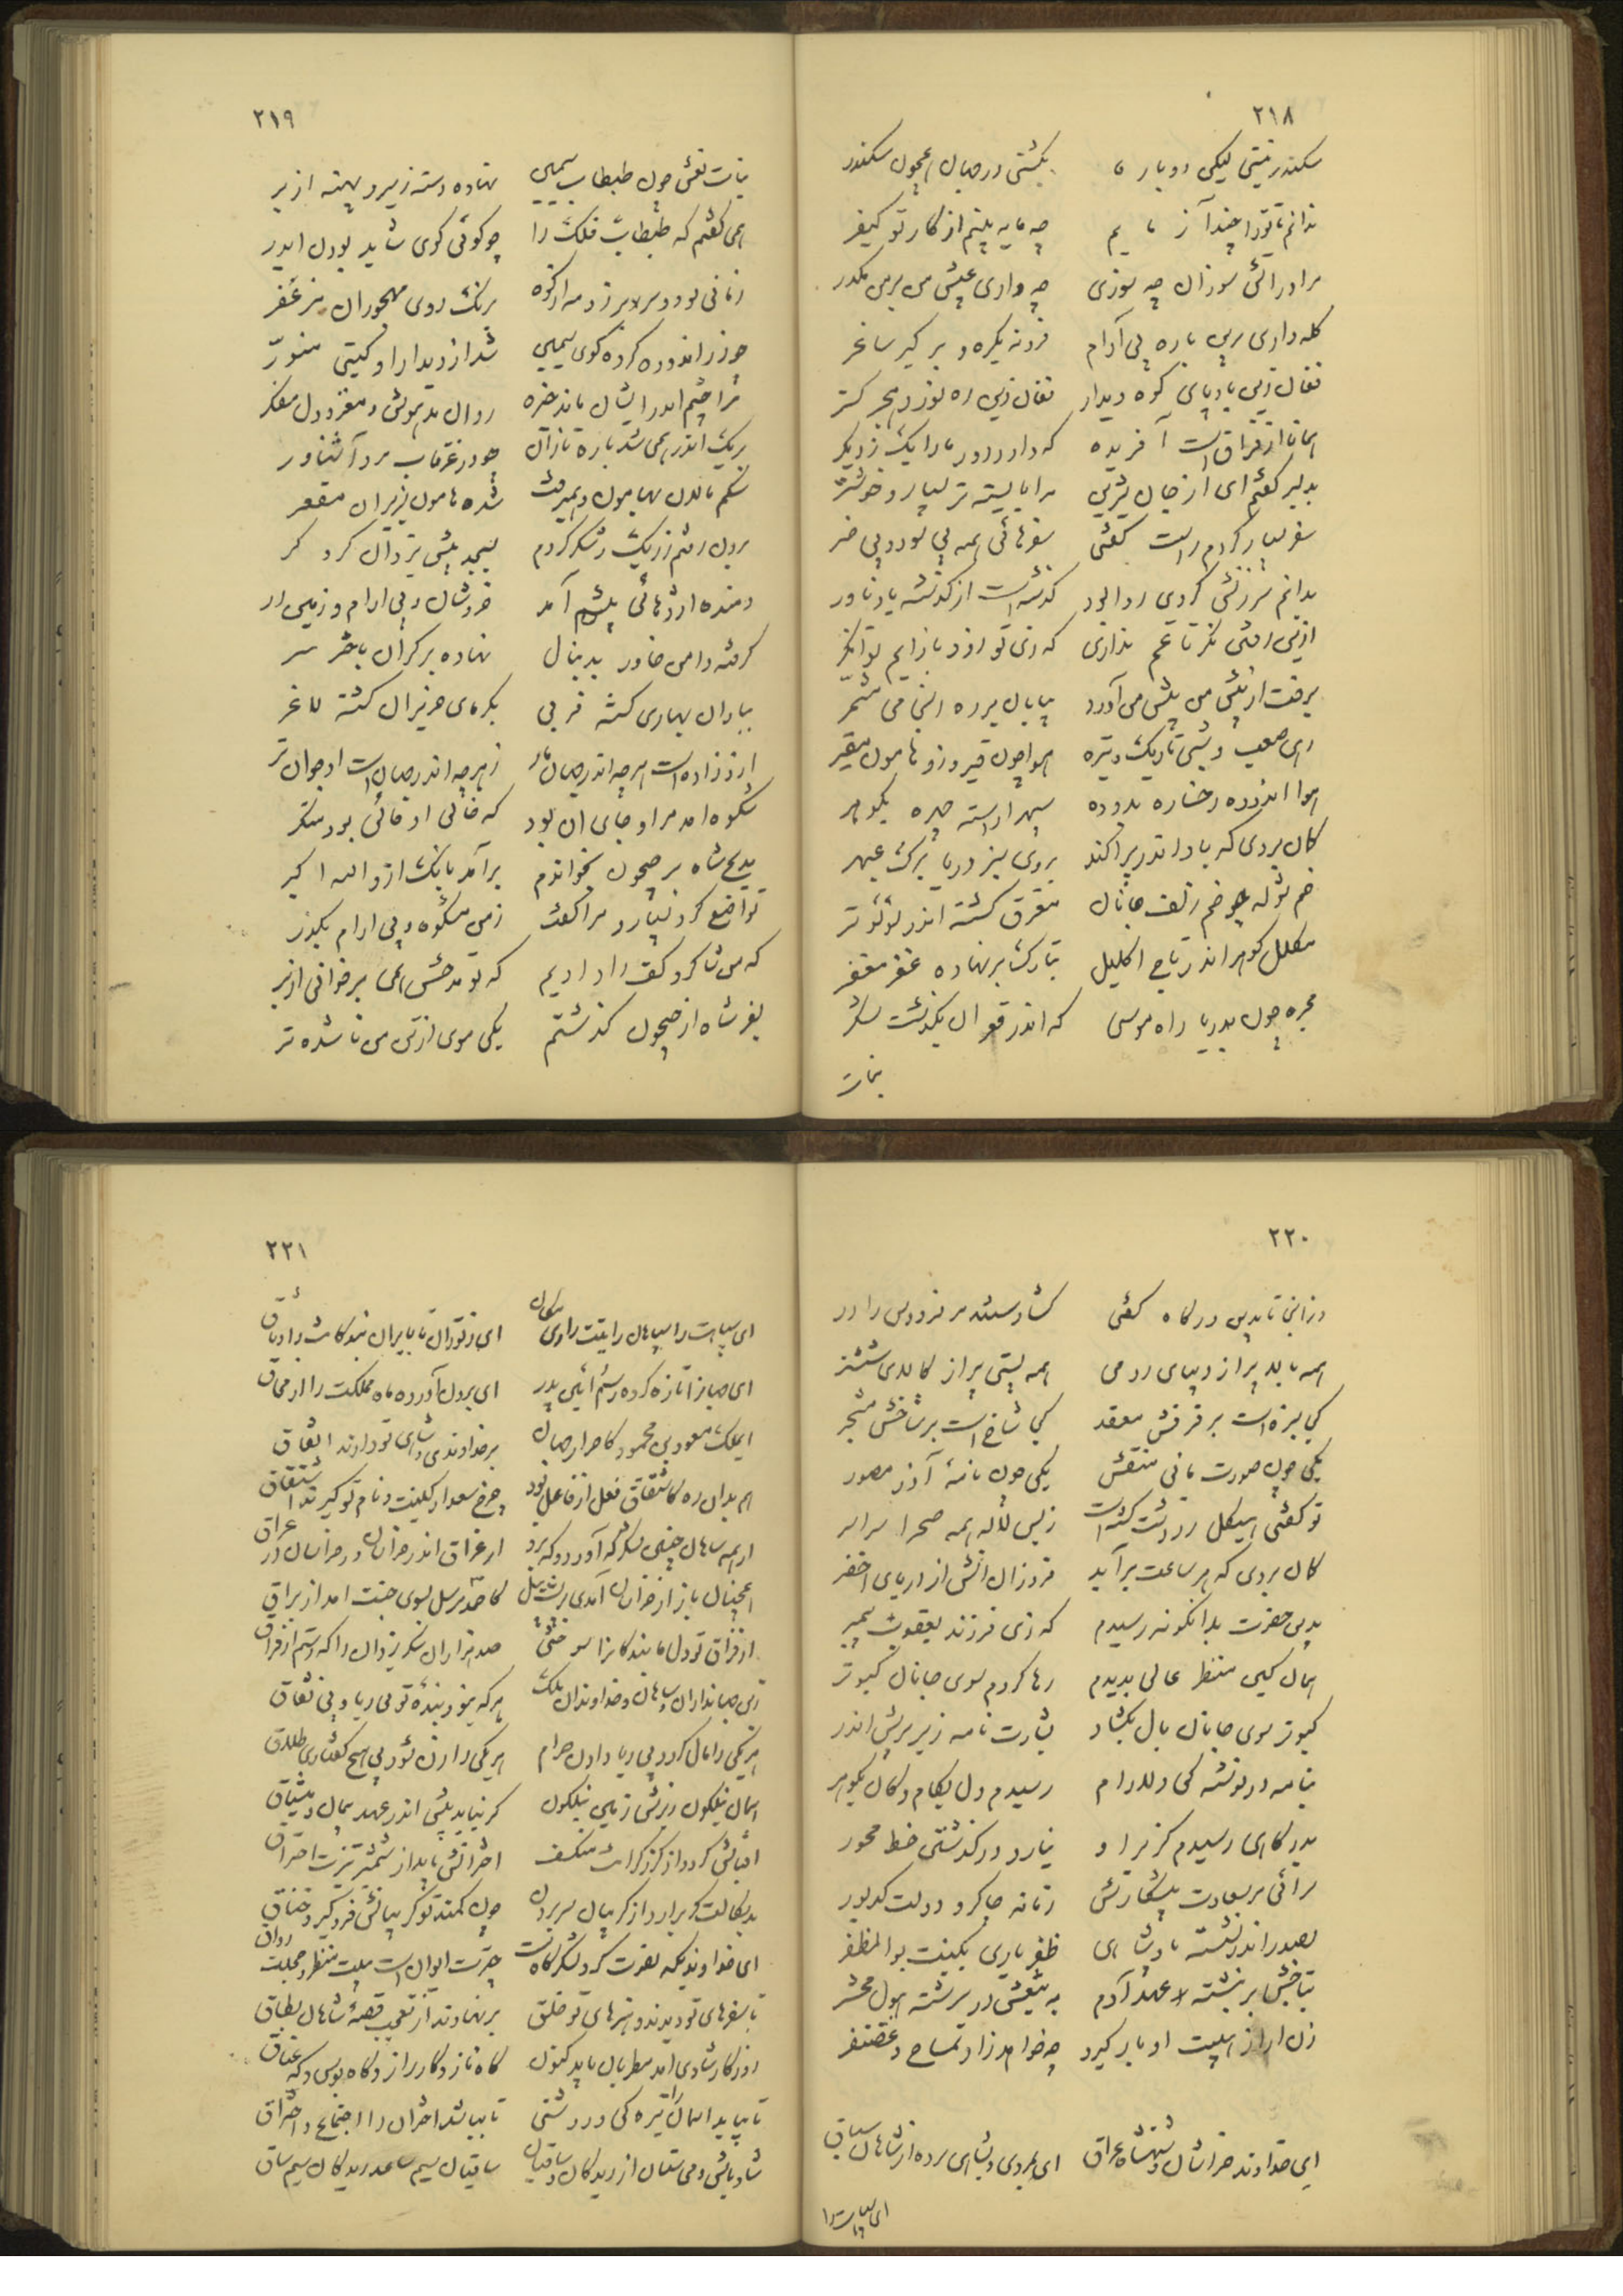 ۲۱۸
سکندر نیستی لیکن دوباره
بگشتی در جهان همچون سکندر
ندانم تا ترا چند آزمایم
چه مایه بینم از کار تو کیفر
مرا در آتش سوزان چه سوزی
چه داری عیش من بر من مکدر
گله داری بدین باره بی آرام
فغان زین بادپای کوه دیدار
فغان زین ره نورد هجر گستر
همانا از فراق است آفریده
که دارد دور ما را یک ز دیگر
سفر بسیار کردم راست گفتی
سفرهائی همه بی سود و بی ضر
بدانم سرزنش کردی روا بود
گذشته است از گذشته یاد ناور
ازین رفتن نگر تا غم نداری
که زی تو زود باز آیم توانگر
برفت از پیش من پیش من آورد
بیابان بر ره انجامی مشمر
رهی صعب و شبی تاریک و تیره
هوا چون قیر و زو هامون مقیر
هوا اندوده رخساره بدوده
سپهر آراسته چهره بگوهر
گمان بردی که باد اندر پراکند
بروی سبز دریا برگ عبهر
خم شوله چو خم زلف جانان
مغرق گشته اندر لؤلؤ تر
مکلل گوهر اندر تاج اکلیل
بتارک بر نهاده غفر مغفر
مجره چون بدریا راه موسی
که اندر قعر آن بگذشت لشکر
بنات
۲۱۹
بنات نعش چون طبطاب سیمین
نهاده دسته زیر و پهنه از بر
همی گفتم که طبطاب فلک را
چو گوئی گوی شاید بودن ایدر
زمانی بود و سر بر زد مه از کوه
برنگ روی مهجوران مزعفر
چو زر اندوده کرده گوی سیمین
شد از دیدار او گیتی منور
مرا چشم اندر ایشان مانده خیره
روان مدهوش و مغز و دل مفکر
بریگ اندر همی شد باره تازان
چو در غرقاب مرد آشناور
شکم مالان بهامون و همیرفت
شده هامون بزیر آن مقعر
برون رفتم ز ریگ و شکر کردم
بسجده پیش یزدان گرو گر
دمنده اژدهائی پیشم آمد
خروشان و بی آرام و زمین در
گرفته دامن خاور بدنبال
نهاده بر کران باختر سر
بباران بهاری گشته فربی
بگرمای حزیران گشته لاغر
ازو زاده است هرچه اندر جهان
ز هرچه اندر جهان است او جوان تر
شکوه آمد مرا و جای آن بود
که
مدیح شاه بر جیحون بخواندم
برآمد بانگ ازو الله اکبر
تواضع کرد بسیار و مرا گفت
ز من مشکوه و بی آرام بگذر
که من شاگرد کف راد آدیم
که تو مدحش همی برخوانی از بر
بفر شاه از جیحون گذشتم
یکی موی از تن من نا شده تر
۲۲۰
وز آنجا تا بدین درگاه گفتی
گشادستند مر فردوس را در
همه بالا پر از دیبای رومی
همه پستی پر از کالای ششتر
کجا سبزه است بر فرقش معقد
کجا شاخ است بر شاخش مشجر
یکی چون صورت مانی منقش
یکی چون نامهٔ آذر مصور
تو گفتی هیکل زردشت گشته است
ز بس لاله همه صحرا سراسر
گمان بردی که هر ساعت برآید
فروزان آتش از دریای اخضر
بدین حضرت بدانگونه رسیدم
که زی فرزند یعقوب پیمبر
همان کین منظر عالی بدیدم
رها کردم سوی جانان کبوتر
کبوتر سوی جانان بال بگشاد
بشارت نامه زیر پرش اندر
بنامه در نوشته کای دلارام
رسیدم دل بکام و کان بگوهر
بدرگاهی رسیدم کز بر او
نیارد در گذشتن خط محور
سرائی مر سعادت پیشکارش
زمانه چاکر و دولت کدیور
بصدر اندر نشسته پادشاهی
ظفر یاری بکنیت بو المظفر
بتاجش بر نبشته عهد آدم
به تیغش در سرشته هول محشر
زن ار از هیبت او بار گیرد
چه خواهد زاد تمساح و غضنفر
ای خداوند خراسان و شهنشاه عراق
ای بمردی و بشاهی برده از شاهان سباق
ای سپاهت را
۲۲۱
ای سپاهت را سپاهان رایتت را ری مکان
ای ز توران تا بایران بندگانت را وثاق
ای جهان را تازه کرده رسم و آئین پدر
ای برون آورده ماه مملکت را از محاق
ای ملک مسعود بن محمود کاحرار جهان
بر خداوندی و شاهی تو دارند اتفاق
هم بدان ره کاشتقاق فعل از فاعل بود
چرخ سعد از کنیت و نام تو گیرد اشتقاق
از همه شاهان چنین لشکر که آورد و که برد
از عراق اندر خراسان وز خراسان در عراق
همچنان باز از خراسان آمدی بر پشت پیل
کاحمد مرسل سوی جنت آمد از براق
از فراق تو دل ما بندگان را سوختی
صد هزاران شکر یزدان را که رستیم از فراق
زین جهانداران و شاهان و خداوندان ملک
هر که نبود بندهٔ تو بی ریا و بی نفاق
هر یکی را مال گردد بی ریا دادن حرام
هر یکی را زن شود بی هیچ گفتاری طلاق
آسمان نیلگون زیرش زمین نیلگون
گر نباید پیش اندر عهد و پیمان و وثاق
آفتابش گردد از گرز گرانت منکسف
اخترانش یابد از شمشیر تیزت احتراق
بدسگالت گر برآرد از گریبان سر برون
چون کمند تو گریبانش فرو گیرد خناق
ای خداوندیکه نصرت گرد لشکرگاه تست
چترت ایوان است و پیلت منظر و فحلت رواق
تا سفرهای تو دیدند و هنرهای تو خلق
بر نهادند از تعجب قصهٔ شاهان بطاق
روزگار شادی آمد مطربان باید کنون
گاه ناز و گاه راز و گاه بوس و گه عناق
تا بپاید آسمان را تیرگی و روشنی
تا بباشد اختران را اجتماع و احتراق
شاد باش و می ستان از ریدکان و ساقیان
ساقیان سیم ساعد ریدکان سیم ساق